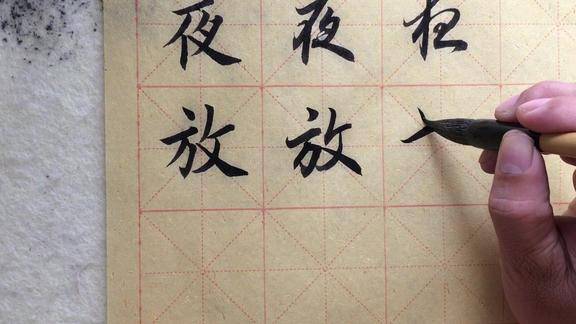 夜 夜
放 放